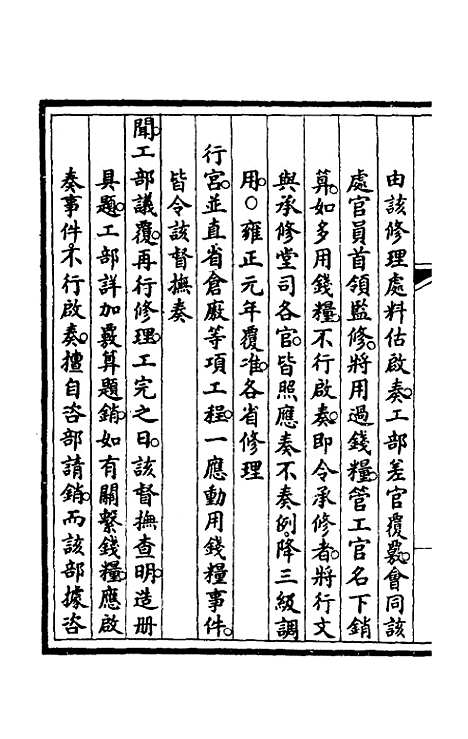 由該修理處料估啟奏。工部差官覆覈。會同該
處官員首領監修。將用過錢糧。管工官名下銷
算。如多用錢糧。不行啟奏。即令承修者。將行文
與承修堂司各官。皆照應奏不奏例。降三級調
用。○雍正元年覆准。各省修理
行宮。並直省倉廠等項工程。一應動用錢糧事件。
皆令該督撫奏
聞。工部議覆。再行修理。工完之日。該督撫查明。造册
具題。工部詳加覈算題銷。如有關繫錢糧。應啟
奏事件。不行啟奏。擅自咨部請銷。而該部據咨